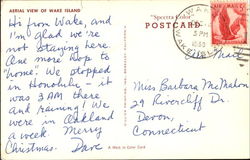 AERIAL VIEW OF WAKE ISLAND
"Spectra-Color"
POSTCARD
AIR MAIL
Hi from Wake, and
I'm glad we're
not staying here.
One more stop to
"home". We stopped
in Honolulu – it
was 3AM there
and raining! We
were in Oakland
a week. Merry
Christmas. Dave
Air Mail
Miss Barbara McMahon
29 Rivercliff Dr.
Devon,
Connecticut